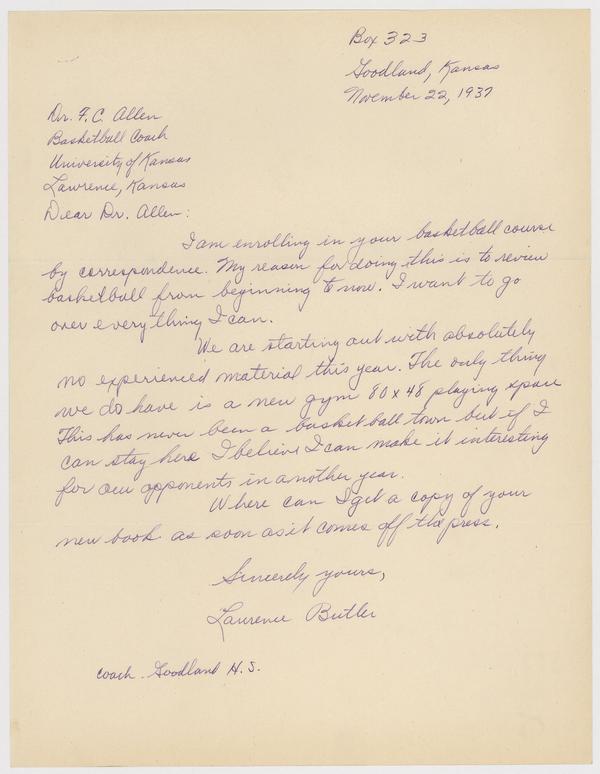 Box 323
Goodland, Kansas
November 22, 1937
Dr. F. C. Allen
Basketball Coach
University of Kansas
Lawrence, Kansas
Dear Dr. Allen:
I am enrolling in your basketball course
by correspondence. My reason for doing this is to review
basketball from beginning to now. I want to go
over everything I can.
We are starting out with absolutely
no experienced material this year. The only thing
we do have is a new gym 80 x 48 playing space
This has never been a basketball town but if I
can stay here I believe I can make it interesting
for our opponents in another year.
Where can I get a copy of your
new book as soon as it comes off the press.
Sincerely yours,
Laurence Butler
Coach. Goodland H.S.